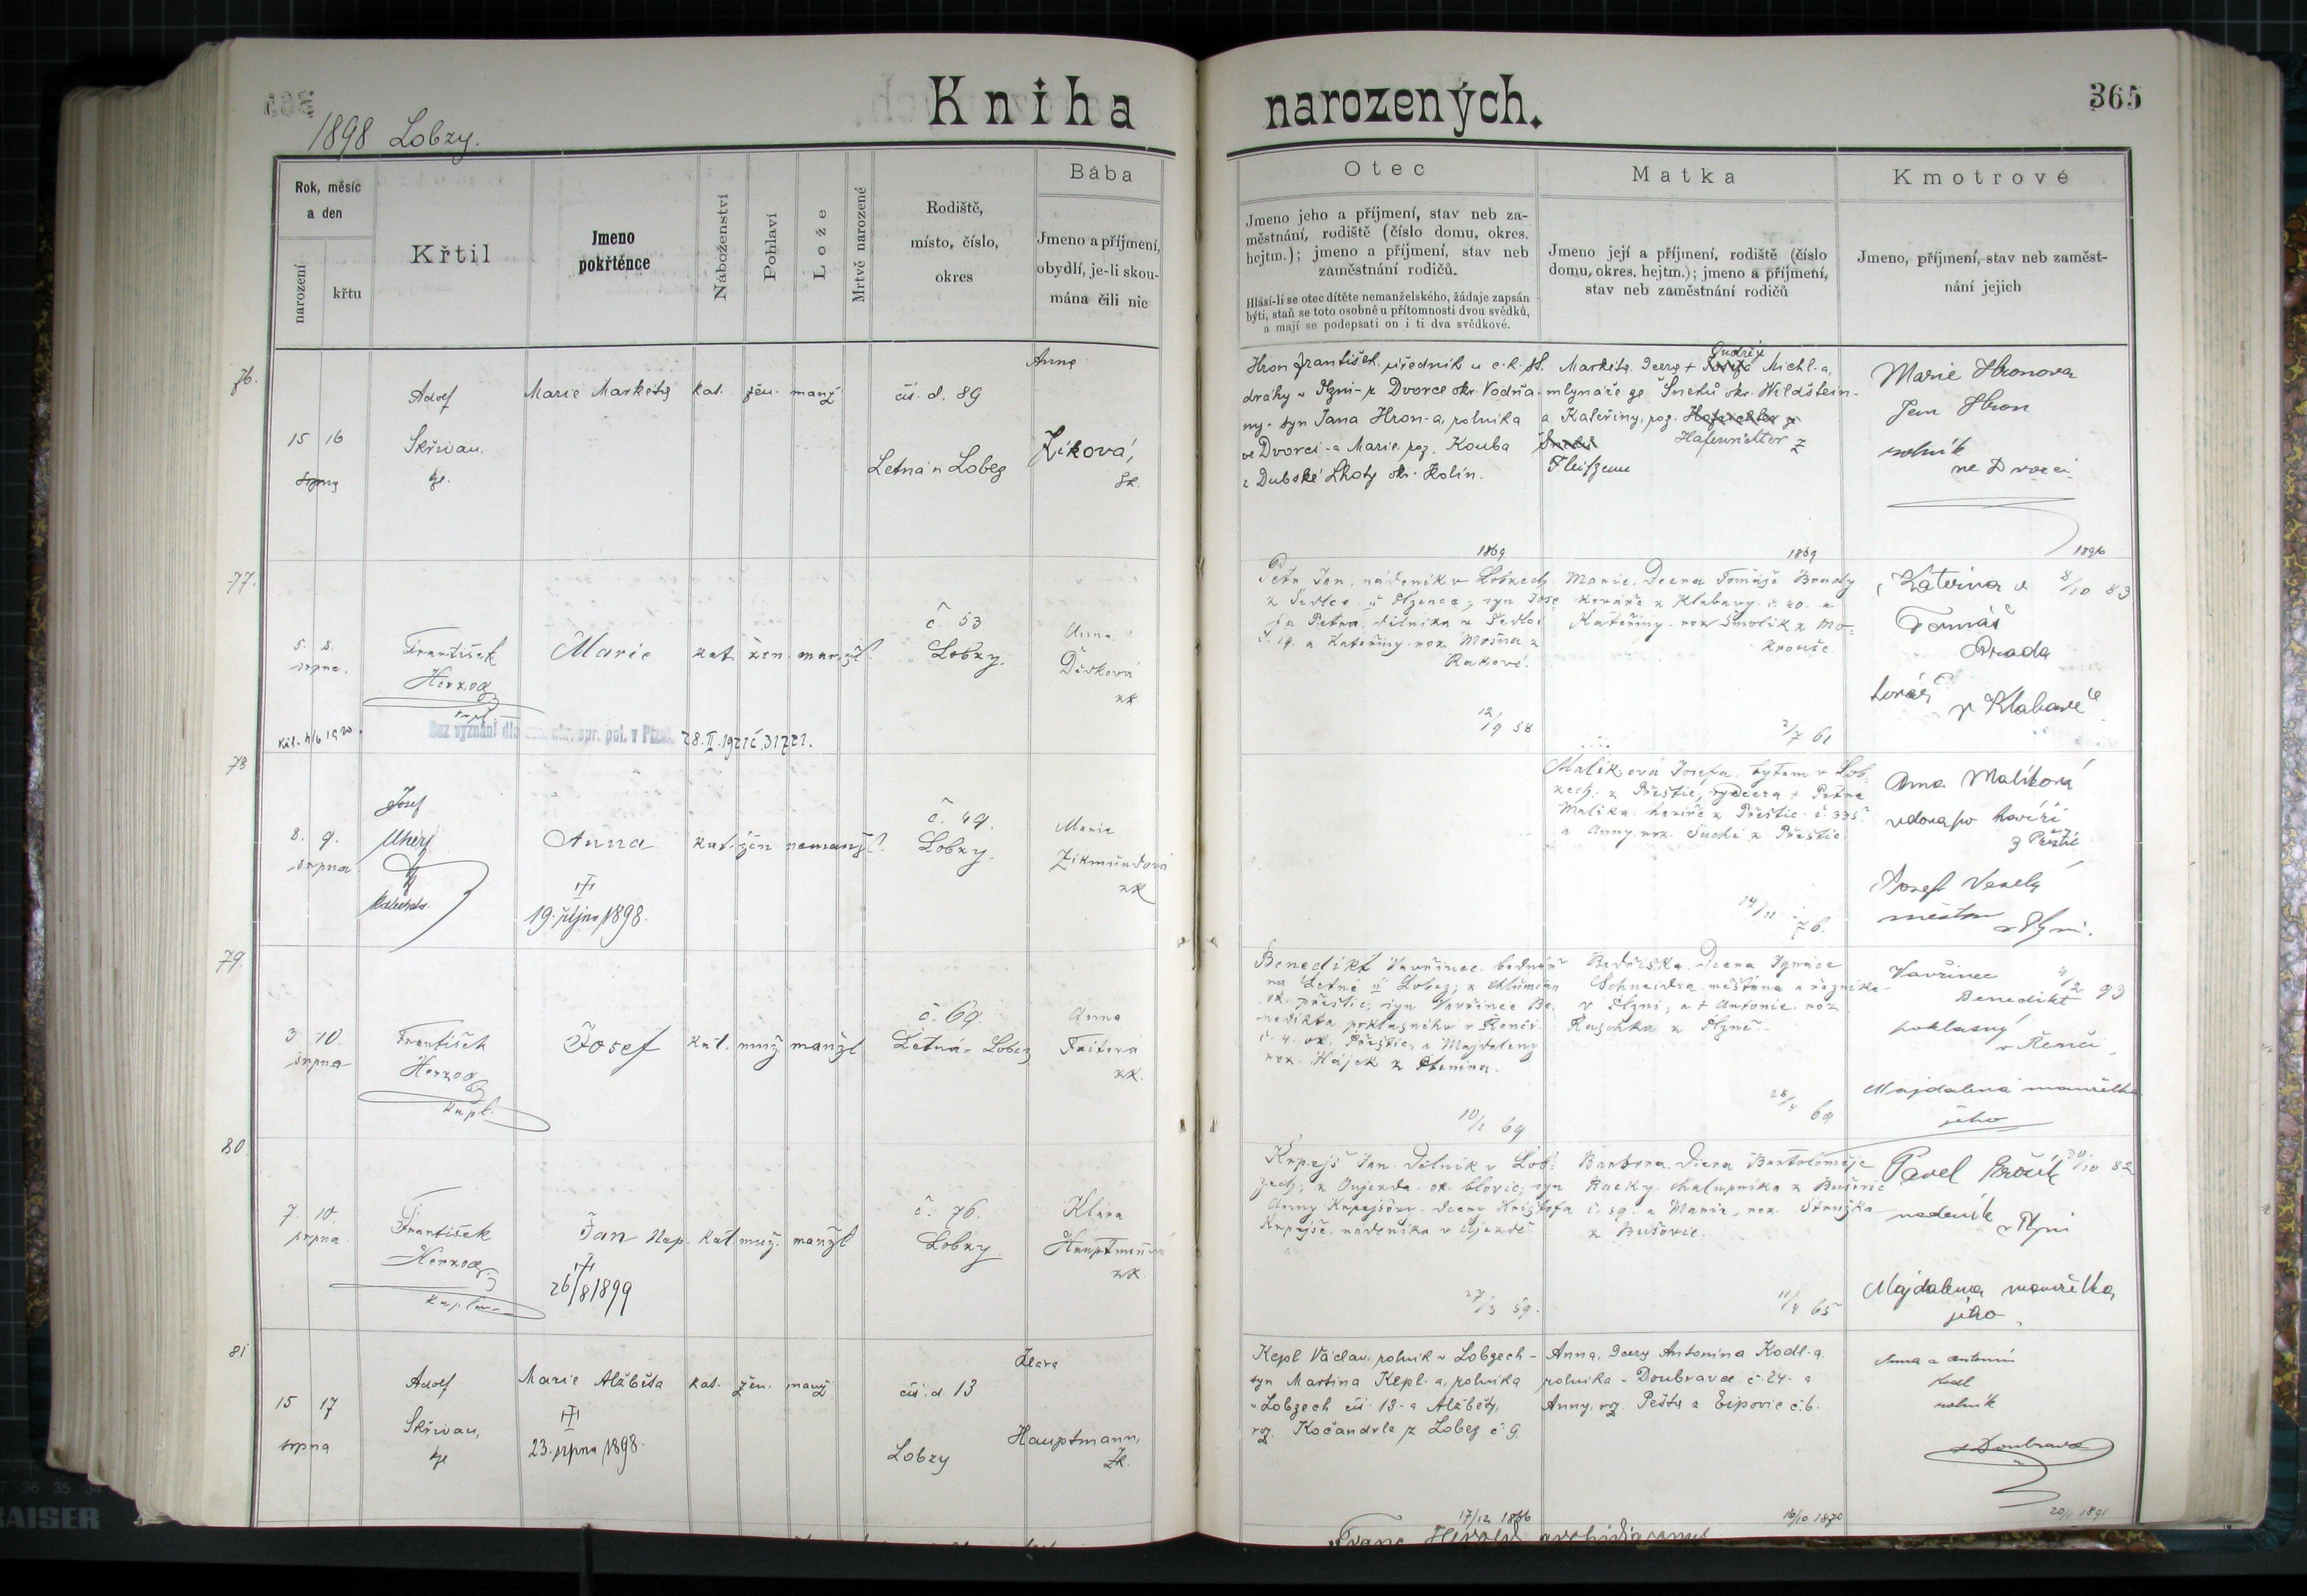 365
Kniha narozených.
1898 Lobzy.
Rok, měsíc
a den
narození
křtu
Křtil
Jmeno
pokřtěnce
Náboženství
Pohlaví
Lože
Mrtvě narozené
Rodiště,
místo, číslo,
okres
Bába
Jmeno a příjmení,
obydlí, je-li skou-
mána čili nic
Otec
Jmeno jeho a příjmení, stav neb za-
městnání, rodiště (číslo domu, okres.
hejtm.); jmeno a příjmení, stav neb
zaměstnání rodičů.
Hlásí-li se otec dítěte nemanželského, žádaje zapsán
býti, staň se toto osobně u přítomnosti dvou svědků,
a mají se podepsati on i ti dva svědkové.
Matka
Jmeno její a příjmení, rodiště (číslo
domu, okres. hejtm.); jmeno a příjmení,
stav neb zaměstnání rodičů
Kmotrové
Jmeno, příjmení, stav neb zaměst-
nání jejich
76.
15 16
srpna
Adolf
Skřivan,
Marie Markéta
kat. žen. manž
čís. d. 89
Letná n Lobez
Anna
Zíková,
zk.
Hron František, úředník u c. k. st.
dráhy v Plzni - z Dvorce okr. Vodňa-
ny - syn Jana Hron-a, rolníka
ve Dvorci - a Marie, roz. Kouba
z Dubské Lhoty okr. Kolín.
1869
Markéta, dcera + Ondřeje Michl-a,
mlynáře ze Šneků okr. Wildštein -
a Kateřiny, roz.
Hafenrichter z
1869
Marie Hronova
Jan Hron
rolník
ve Dvorci
1896
77.
5. 8.
srpna.
František
Herzog
kapl
Marie
kat. žen. manžl.
č. 53
Lobzy.
Anna
zk
Petr Jan, nádeník v Lobzech
z Sedlce u Plzence; syn Jose-
fa Petra, dělníka z Sedlce
č. 19. a Kateřiny roz. Mošna z
Rakové.
12/9 58
Marie. Dcera Tomáše Brady
kováře z Klabavy. č. 40. a
Kateřiny. roz Smolík z Mo-
krouše.
2/7 61
Kateřina a 8/10 83
Tomáš
Brada
kovář
v Klabavě
Bez vyznání dle ozn. okr. spr. pol. v Plzni 28. II. 1921 č. 31721.
78
8. 9.
srpna
Josef
Uherž
Anna
19. října 1898.
kat. žen nemanžl.
č. 49.
Lobzy.
Marie
Zikmundova
zk
Malíková Josefa. bytem v Lob-
zech. z Přeštic, dcera + Petra
Malíka. havíře z Přeštic. č. 335.
a Anny. roz. Suché z Přeštic.
14/11 76.
Anna Malíková
vdova po havíři
z Přeštic
Josef Veselý
v Plzni.
79
3 10.
srpna
František
Herzog
kapl.
Josef
kat. muž. manžl
č. 69.
Letná - Lobez
Anna
Faitová
zk.
Benedikt Vavřinec. bednář
na Letné u Lobez; z Chlumčan
ok. Přeštic, syn Vavřince Be-
nedikta poklasného v Řenči.
č. 4. ok. Přeštic, a Majdaleny
roz. Hájek z Ptenína.
10/1 69
Bedřiška. Dcera Ignáce
Schneidra. měšťana a řezníka -
v Plzni, a + Antonie roz.
Raschka z Plzně.
28/4 69
Vavřinec 4/2 93
Benedikt
poklasný
v Řenči
Majdalena manželka
jeho
80
7. 10.
srpna
František
Herzog.
kaplan
Jan Nep.
26/8 1899
kat. muž. manžl
č. 76.
Lobzy
Klára
zk.
Krpejš Jan. Dělník v Lob-
zech; z Oujezda. ok. Blovic, syn
Anny Krpejšov. dcery Krištofa
Krpejše. nádeníka v Újezdě
27/3 59.
Barbora. Dcera Bartoloměje
Racky. chalupníka z Bušovic
č. 59. a Marie, roz. Stružka
z Bušovic.
11/4 65
Pavel Brožík 30/10 82
nadeník v Plzni
Majdalena manželka
jeho.
81
15 17
srpna
Adolf
Skřivan,
Marie Alžběta
23. srpna 1898.
kat. žen. manž
čís. d. 13
Lobzy
Klara
Hauptmann,
zk.
Kepl Václav, rolník v Lobzech -
syn Martina Kepl-a, rolníka
v Lobzech čís 13 - a Alžběty,
roz. Kočandrle z Lobez č 9.
17/12 1866
Anna, dcery Antonína Kodl-a.
rolníka - Doubravce č. 24 - a
Anny, roz. Pešty z Ejpovic č. 6.
16/10 1870
Anna a Antonín
Kodl
rolník
z Doubravce
20/1 1891